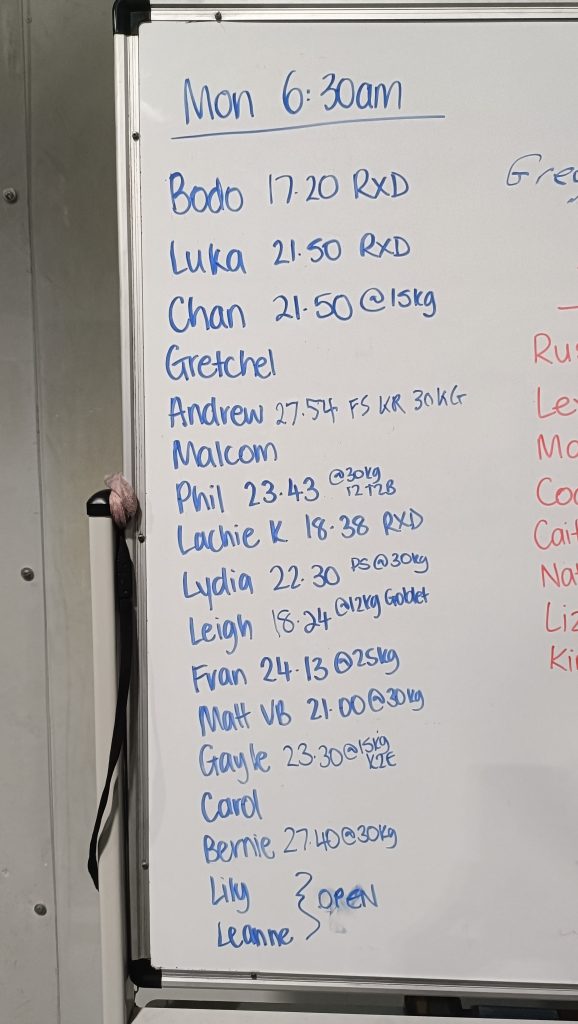 Mon 6:30am
Bodo 17.20 RXD
Luka 21.50 RXD
Chan 21.50 @15kg
Gretchel
Andrew 27.54 FS KR 30KG
Malcom
Phil 23.43 @30kg
12 T2B
Lachie K 18.38 RXD
Lydia 22.30 PS@30kg
Leigh 18.24 @12kg Goblet
Fran 24.13 @25kg
Matt VB 21.00 @30kg
Gayle 23.30 @15kg
K2E
Carol
Bernie 27.40 @30kg
Lily
Leanne } OPEN
Gre
Ru
Le
Mo
Coo
Cait
Nat
Liz
Kir